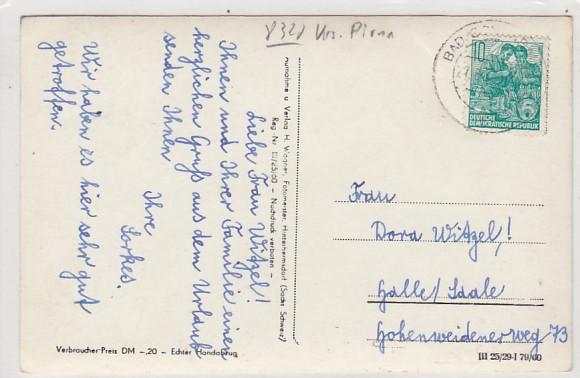 8321 Krs. Pirna
Liebe Frau Witzel!
Ihnen und Ihrer Familie einen
herzlichen Gruß aus dem Urlaub
senden Ihnen
Ihre
Wir haben es hier sehr gut
getroffen.
Aufnahme u Verlag H. Wagner, Fotomeister, Hinterhermsdorf (Sächs Schweiz)
Reg.-Nr. - Nachdruck verboten -
Verbraucher-Preis DM -,20 - Echter Handabzug
BAD
10
DEUTSCHE
DEMOKRATISCHE REPUBLIK
Frau
Dora Witzel,!
Halle/Saale
Hohenweidenerweg 73
III 25/29-I 79/60